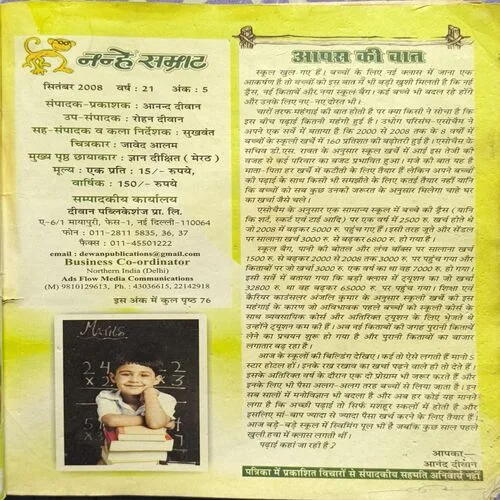 नन्हे सम्राट
सितंबर 2008 वर्ष : 21 अंक : 5
संपादक-प्रकाशक : आनन्द दीवान
उप-संपादक : रोहन दीवान
सह-संपादक व कला निर्देशक : सुखवंत
चित्रकार : जावेद आलम
मुख्य पृष्ठ छायाकार : ज्ञान दीक्षित (मेरठ)
मूल्य : एक प्रति : 15/- रुपये,
वार्षिक : 150/- रुपये
सम्पादकीय कार्यालय
दीवान पब्लिकेशंज प्रा. लि.
ए-6/1 मायापुरी, फेस-1, नई दिल्ली-110064
फोन : 011-2811 5835, 36, 37
फैक्स : 011-45501222
email : dewanpublications@gmail.com
Business Co-ordinator
Northern India (Delhi)
Ads Flow Media Communications
(M) 9810129613, Ph. : 43036615, 22142918
इस अंक में कुल पृष्ठ 76
Maths
आपस की बात
स्कूल खुल गए हैं। बच्चों के लिए नई क्लास में जाना एक
आकर्षण है तो बच्चों को इस बात में भी बड़ी खुशी मिलती है कि नई
ड्रैस, नई किताबें और नया स्कूल बैग। कई बच्चे भी बदल रहे होंगे
और उनके लिए नए-नए दोस्त भी।
चारों तरफ महंगाई की बात होती है पर क्या किसी ने सोचा है कि
इस बीच पढ़ाई कितनी महंगी हुई है। उद्योग परिसंघ-एसोचैम ने
अपने एक सर्वे में बताया है कि 2000 से 2008 तक के 8 वर्षों में
बच्चों के स्कूली खर्च में 160 प्रतिशत की बढ़ोतरी हुई है। एसोचैम के
सचिव डी.एस. रावत के अनुसार स्कूली खर्च में आई इस तेजी की
वजह से कई परिवार का बजट प्रभावित हुआ। मजे की बात यह है
माता-पिता हर खर्च में कटौती के लिए तैयार हैं लेकिन अपने बच्चों
की पढ़ाई के साथ किसी भी समझौते के लिए कतई तैयार नहीं यानि
कि बच्चों को सब कुछ उनकी जरूरत के अनुसार मिलेगा चाहे घर
का खर्चा जैसे चले।
एसोचैम के अनुसार एक सामान्य स्कूल में बच्चे की ड्रैस (यानि
कि शर्ट, स्कर्ट एवं टाई आदि) पर एक वर्ष में 2500 रु. खर्च होते थे
जो 2008 में बढ़कर 5000 रु. पहुंच गए हैं। इसी तरह जूते और सैंडल
पर सालाना खर्च 3000 रु. से 6800 रु. हो गया है।
स्कूल बैग, पानी की बोतल और लंच बॉक्स पर सालाना खर्च
1500 रु. से बढ़कर 2000 से 2008 तक में 3000 रु. पर पहुंच गया और
किताबों पर जो खर्च 3000 रु. एक वर्ष का था वह 7000 रु. हो गया।
इसी सर्वे में बताया गया कि बड़ी क्लास में ट्यूशन का जो खर्चा
32800 रु. था वह बढ़कर 65000 रु. पर पहुंच गया। शिक्षा एवं
कैरियर काउंसलर अंजलि कुमार के अनुसार स्कूली खर्चे की इस
महंगाई के कारण जो अविभावक पहले बच्चों को स्कूली कोर्स के
साथ व्यवसायिक कोर्स और अतिरिक्त ट्यूशन के लिए भेजते थे
उन्होंने ट्यूशन कम की हैं। अब नई किताबों की जगह पुरानी किताबें
लेने का प्रचलन शुरू हो गया है और पुरानी किताबों का बाजार
लगातार बढ़ रहा है।
आज के स्कूलों की बिल्डिंग देखिए। कई तो ऐसे लगती हैं मानो 5
स्टार होटल हों। इनके रख रखाव का खर्चा पढ़ने वाले ही तो देते हैं।
इसके अतिरिक्त वर्ष के दौरान एक दो प्रोग्राम भी जरूर करते हैं और
इनके लिए भी पैसा अलग-अलग तरह बच्चों से लिया जाता है। इन
सब सालों में मनोविज्ञान भी बदला है और अब हर कोई यह मानने
लगा है कि अच्छी पढ़ाई तो सिर्फ मशहूर स्कूलों में होती है और
इसलिए मां-बाप ज्यादा से ज्यादा पैसा खर्च करने के लिए तैयार हैं।
आज बड़े-बड़े स्कूल में स्विमिंग पूल भी है जबकि कुछ साल पहले
खुली हवा में क्लास लगती थी।
पढ़ाई कहां जा रही है?
आपका-
आनंद दीवान
पत्रिका में प्रकाशित विचारों से संपादकीय सहमति अनिवार्य नहीं